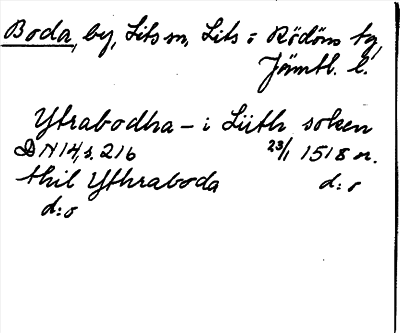 Boda, by, Lits sn, Lits o Rödöns tg,
Jämtl. l.
Ytrabodha – i Liith soken
DN 14, s. 216 23/1 1518 n.
thil Ythraboda d:o
d:o